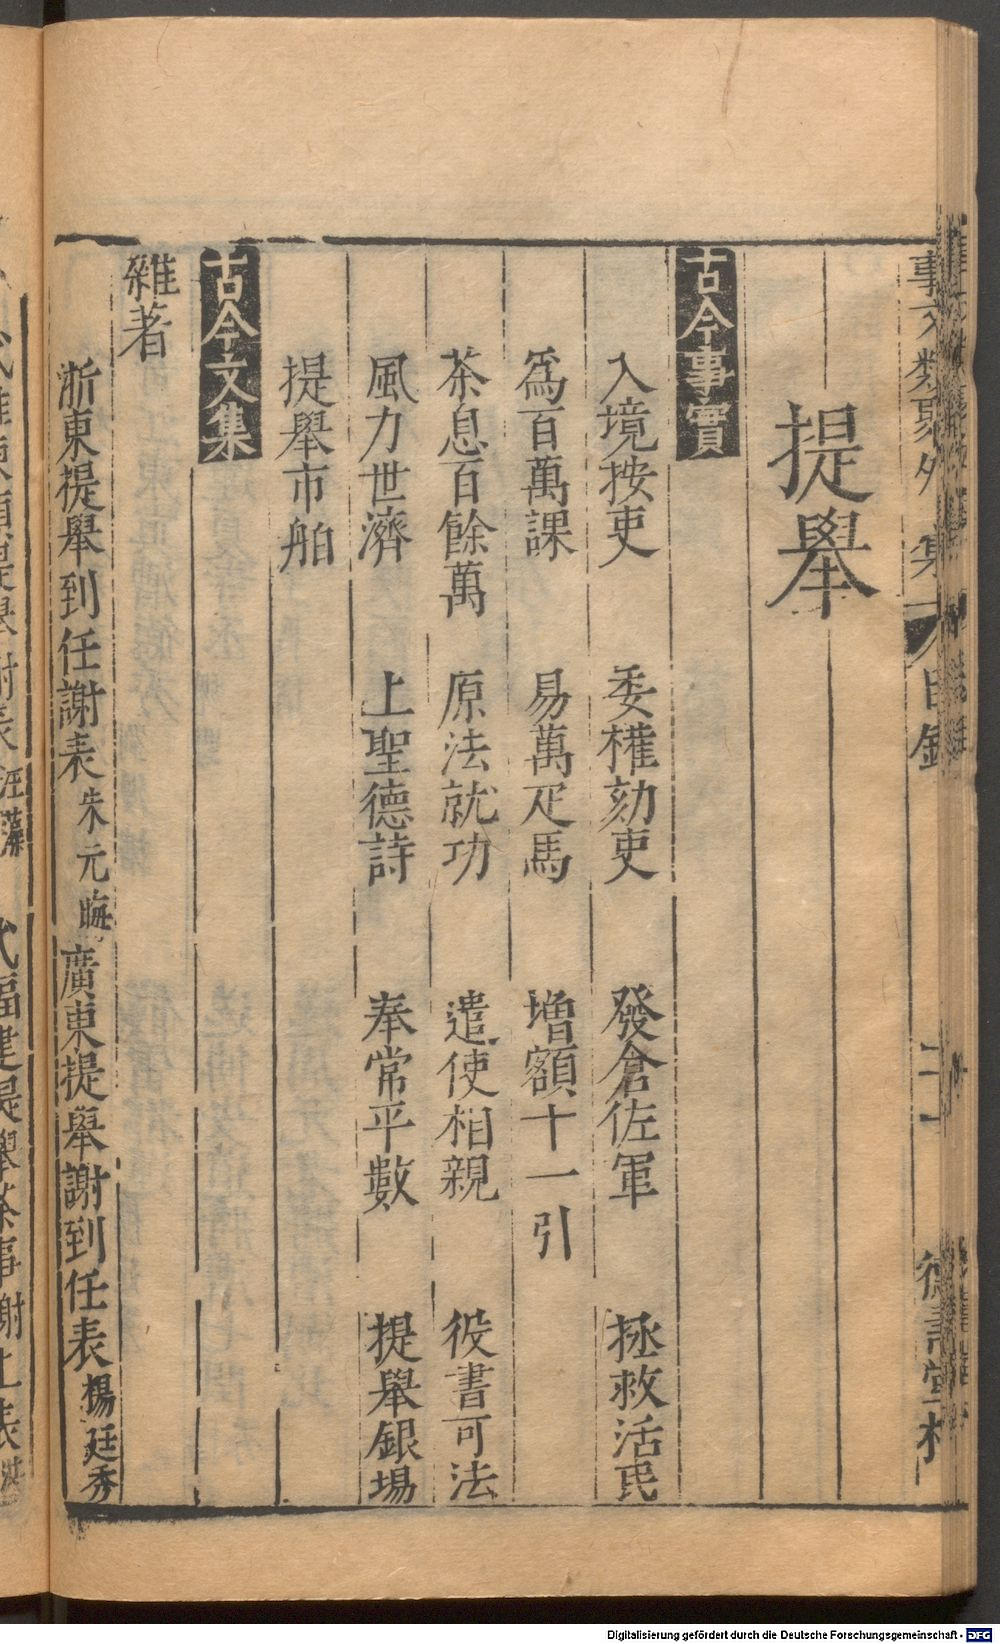 事文類聚外集 目錄 二十一 德壽堂梓
提舉
古今事實
入境按吏 委權劾吏 發倉佐軍 拯救活民
爲百萬課 易萬疋馬 增額十一引
茶息百餘萬 原法就功 遣使相親 役書可法
風力世濟 上聖德詩 奉常平數 提舉銀場
提舉市舶
古今文集
雜著
浙東提舉到任謝表 朱元晦 廣東提舉謝到任表 楊廷秀
福建提舉茶事謝上表
Digitalisierung gefördert durch die Deutsche Forschungsgemeinschaft - DFG